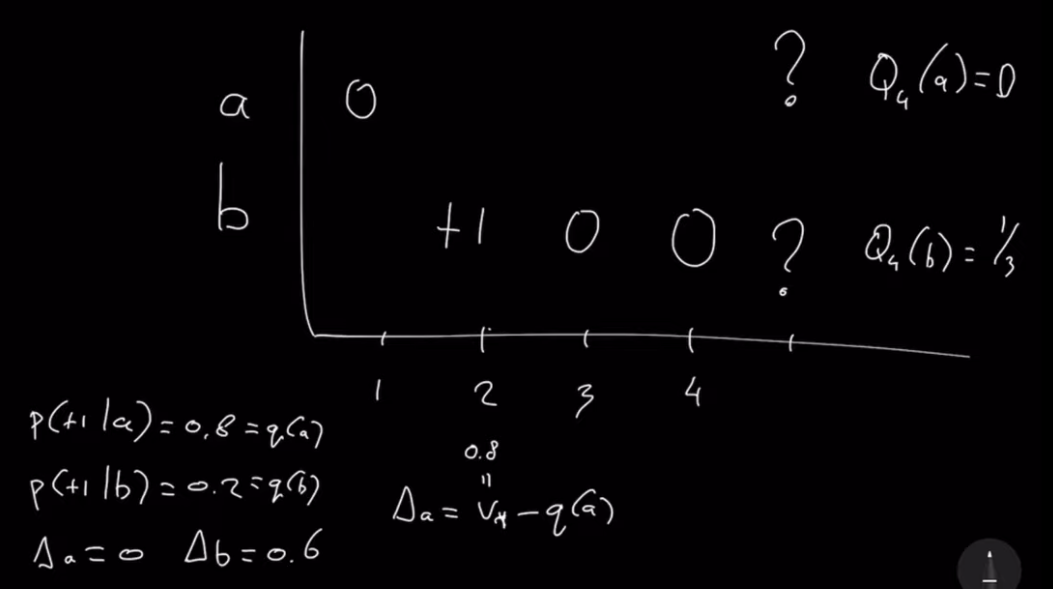 a 0 ? Q₄(a)=0
b +1 0 0 ? Q₄(b)=1/3
1 2 3 4
p(+1|a)=0.8=q(a)
p(+1|b)=0.2=q(b)
Δa=0 Δb=0.6
0.8
"
Δa=v*-q(a)